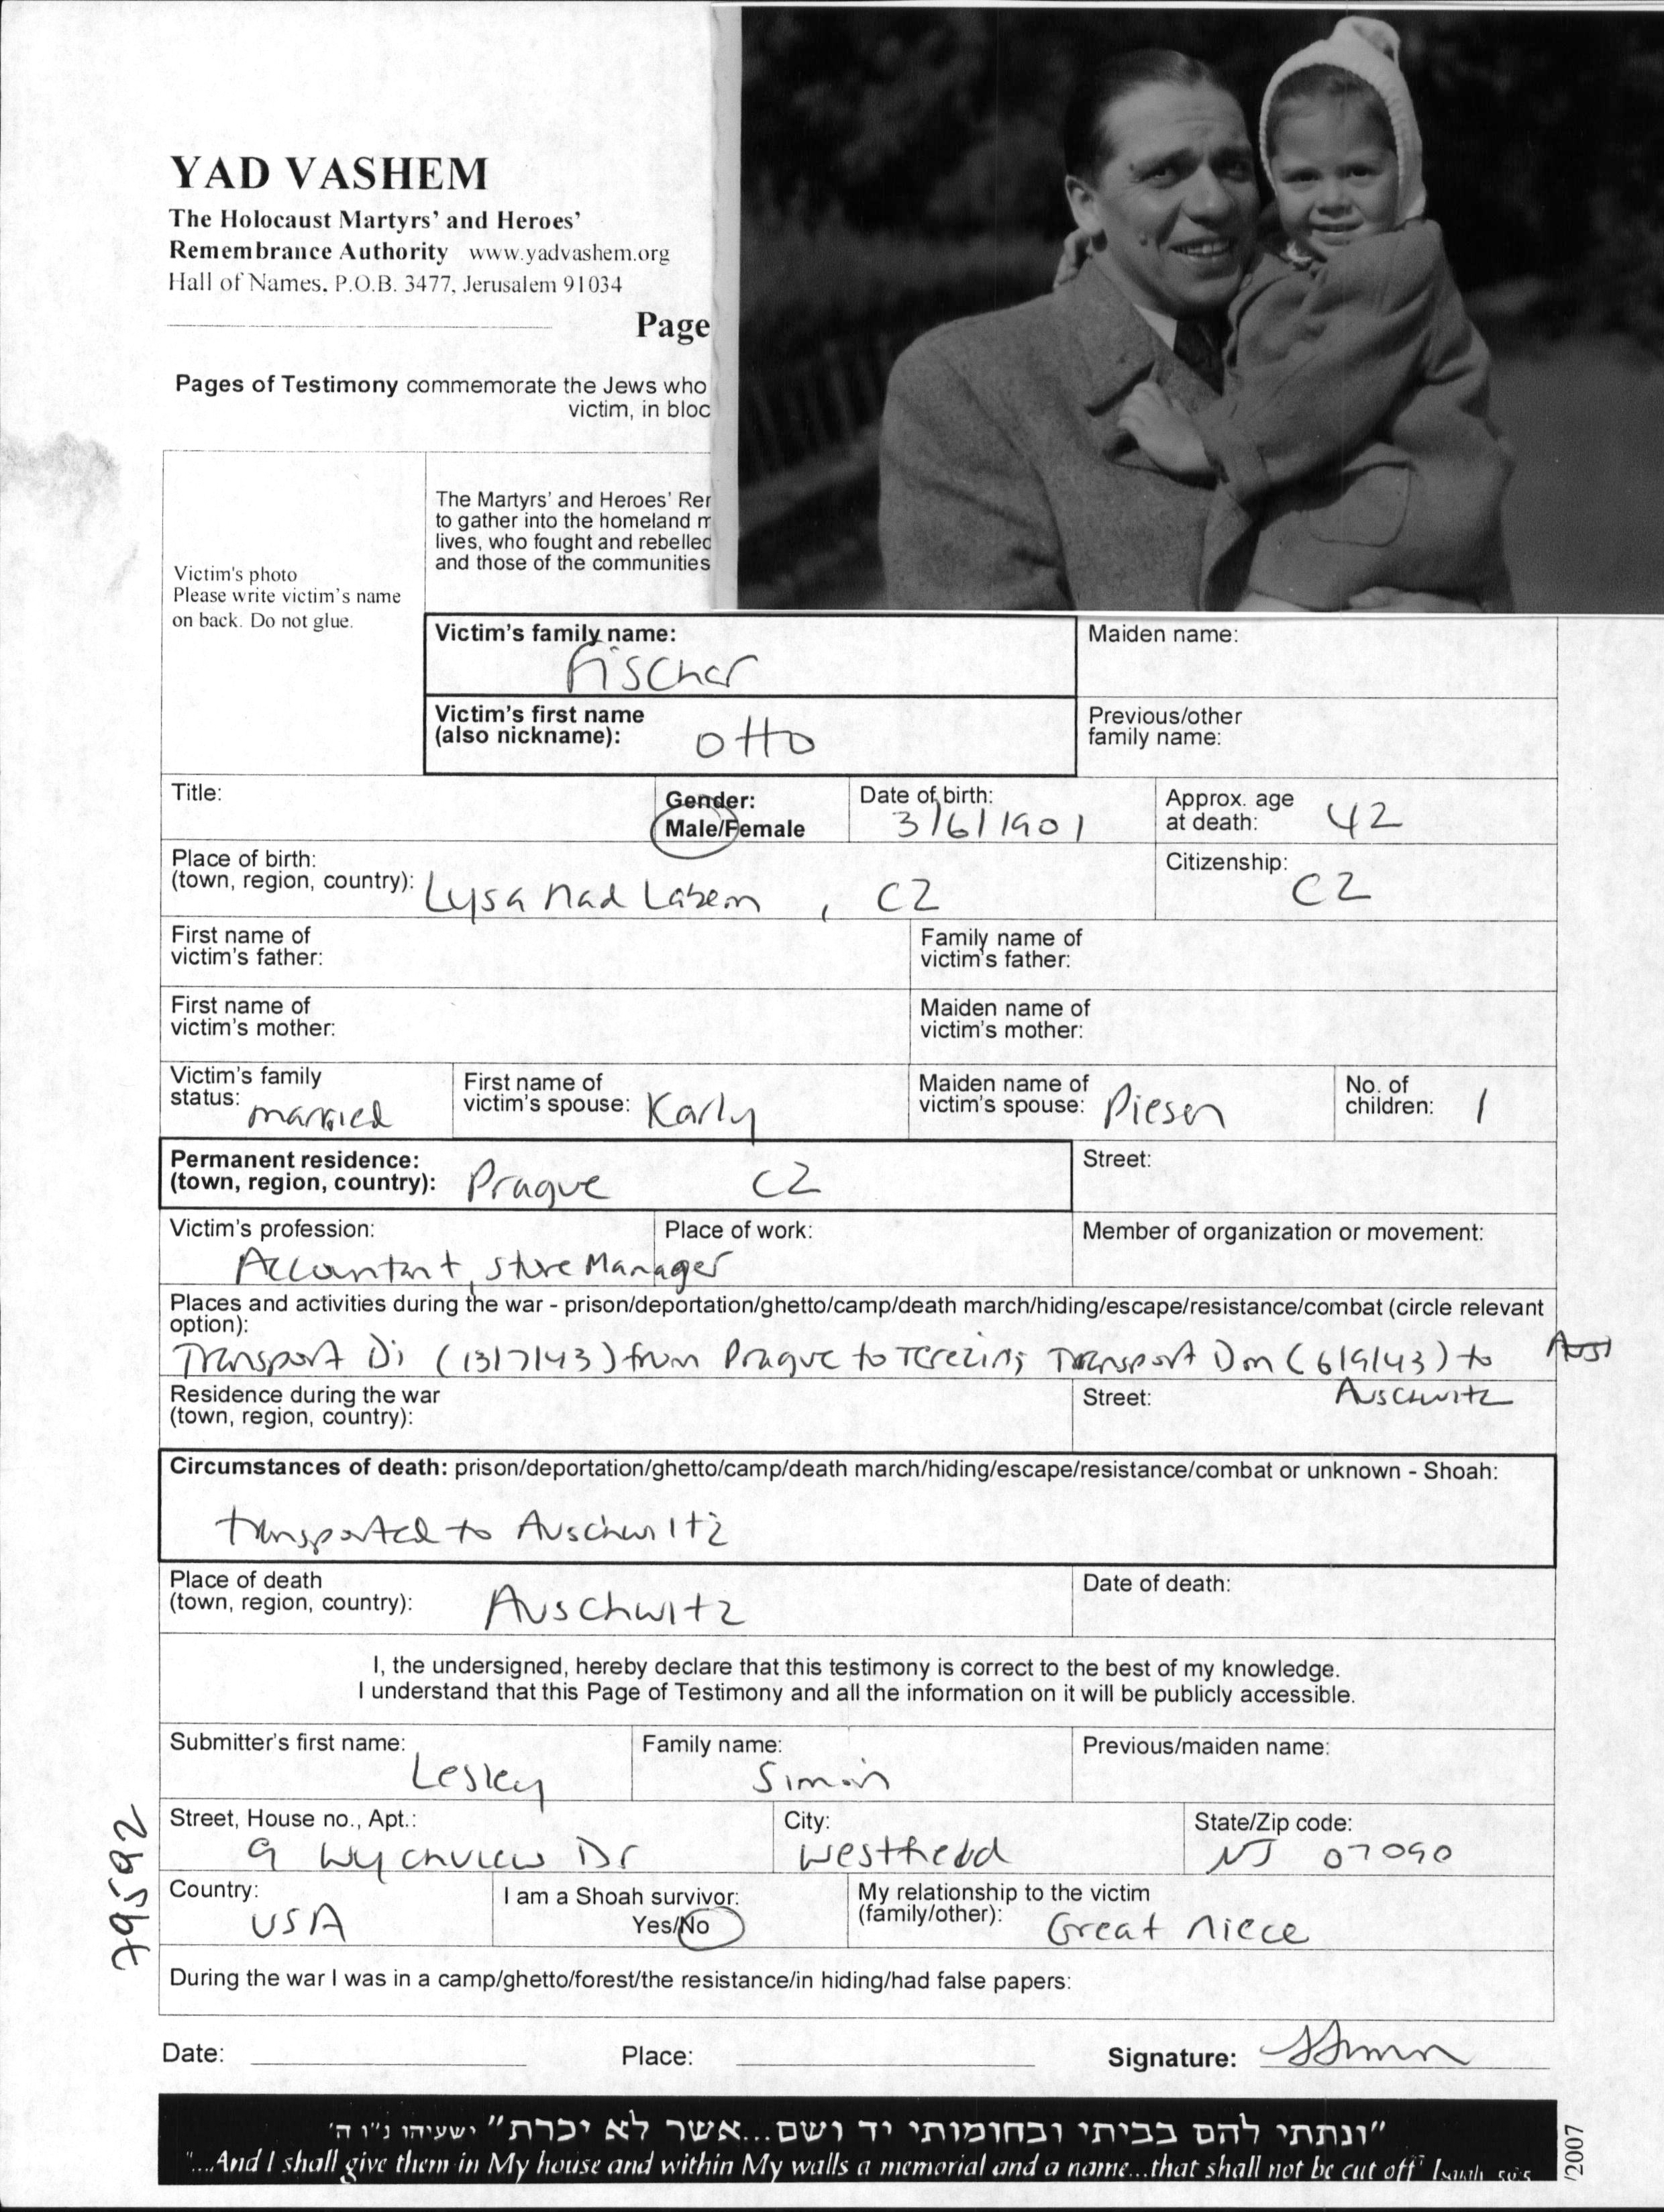 YAD VASHEM
The Holocaust Martyrs' and Heroes'
Remembrance Authority www.yadvashem.org
Hall of Names, P.O.B. 3477, Jerusalem 91034
Page
Pages of Testimony commemorate the Jews who
victim, in bloc
Victim's photo
Please write victim's name
on back. Do not glue.
The Martyrs' and Heroes' Rer
to gather into the homeland m
lives, who fought and rebelled
and those of the communities
Victim's family name: Fischer
Maiden name:
Victim's first name
(also nickname): Otto
Previous/other
family name:
Title:
Gender:
Male/Female
Date of birth:
3/6/1901
Approx. age
at death: 42
Place of birth:
(town, region, country): Lysa nad Labem, CZ
Citizenship:
CZ
First name of
victim's father:
Family name of
victim's father:
First name of
victim's mother:
Maiden name of
victim's mother:
Victim's family
status: married
First name of
victim's spouse: Karly
Maiden name of
victim's spouse: Piesen
No. of
children: 1
Permanent residence:
(town, region, country): Prague CZ
Street:
Victim's profession:
Place of work:
Accountant, Store Manager
Member of organization or movement:
Places and activities during the war - prison/deportation/ghetto/camp/death march/hiding/escape/resistance/combat (circle relevant
option):
Transport Di (13/7/43) from Prague to Terezin; Transport Dm (6/9/43) to
Auschwitz
Residence during the war
(town, region, country):
Street:
Circumstances of death: prison/deportation/ghetto/camp/death march/hiding/escape/resistance/combat or unknown - Shoah:
transported to Auschwitz
Place of death
(town, region, country): Auschwitz
Date of death:
I, the undersigned, hereby declare that this testimony is correct to the best of my knowledge.
I understand that this Page of Testimony and all the information on it will be publicly accessible.
Submitter's first name: Lesley
Family name: Simon
Previous/maiden name:
Street, House no., Apt.:
9 Wychview Dr
City:
Westfield
State/Zip code:
NJ 07090
Country:
USA
I am a Shoah survivor:
Yes/No
My relationship to the victim
(family/other): Great niece
During the war I was in a camp/ghetto/forest/the resistance/in hiding/had false papers:
Date:
Place:
Signature:
79592
"ונתתי להם בביתי ובחומותי יד ושם...אשר לא יכרת" ישעיהו נ"ו ה'
"...And I shall give them in My house and within My walls a memorial and a name...that shall not be cut off" Isaiah 56:5
/2007